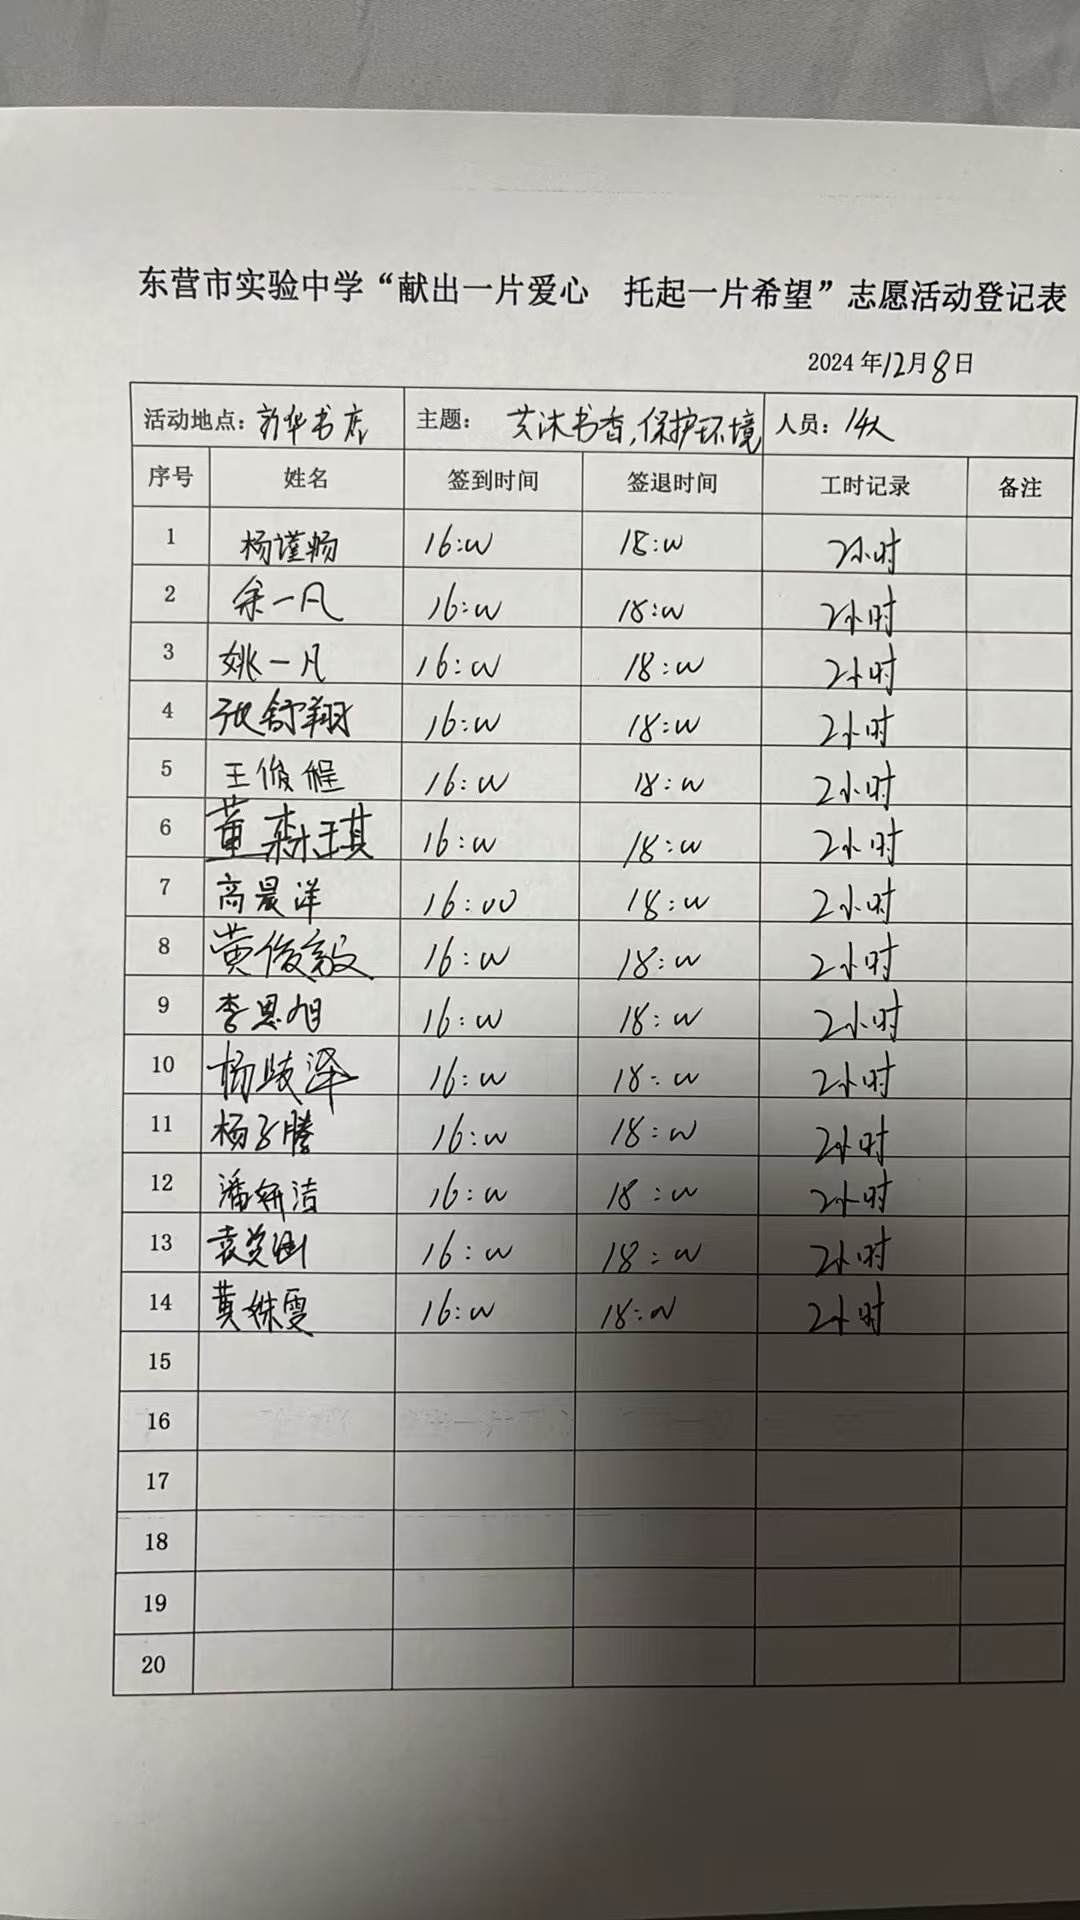 东营市实验中学“献出一片爱心 托起一片希望”志愿活动登记表
2024年12月8日
活动地点：新华书店 主题：共沐书香，保护环境 人员：14人
序号 姓名 签到时间 签退时间 工时记录 备注
1 杨谨畅 16:00 18:00 2小时
2 余一凡 16:00 18:00 2小时
3 姚一凡 16:00 18:00 2小时
4 张舒翔 16:00 18:00 2小时
5 王俊程 16:00 18:00 2小时
6 董森琪 16:00 18:00 2小时
7 高晨洋 16:00 18:00 2小时
8 黄俊毅 16:00 18:00 2小时
9 李恩旭 16:00 18:00 2小时
10 杨岐泽 16:00 18:00 2小时
11 杨子腾 16:00 18:00 2小时
12 潘妍洁 16:00 18:00 2小时
13 袁 16:00 18:00 2小时
14 黄姝雯 16:00 18:00 2小时
15
16
17
18
19
20